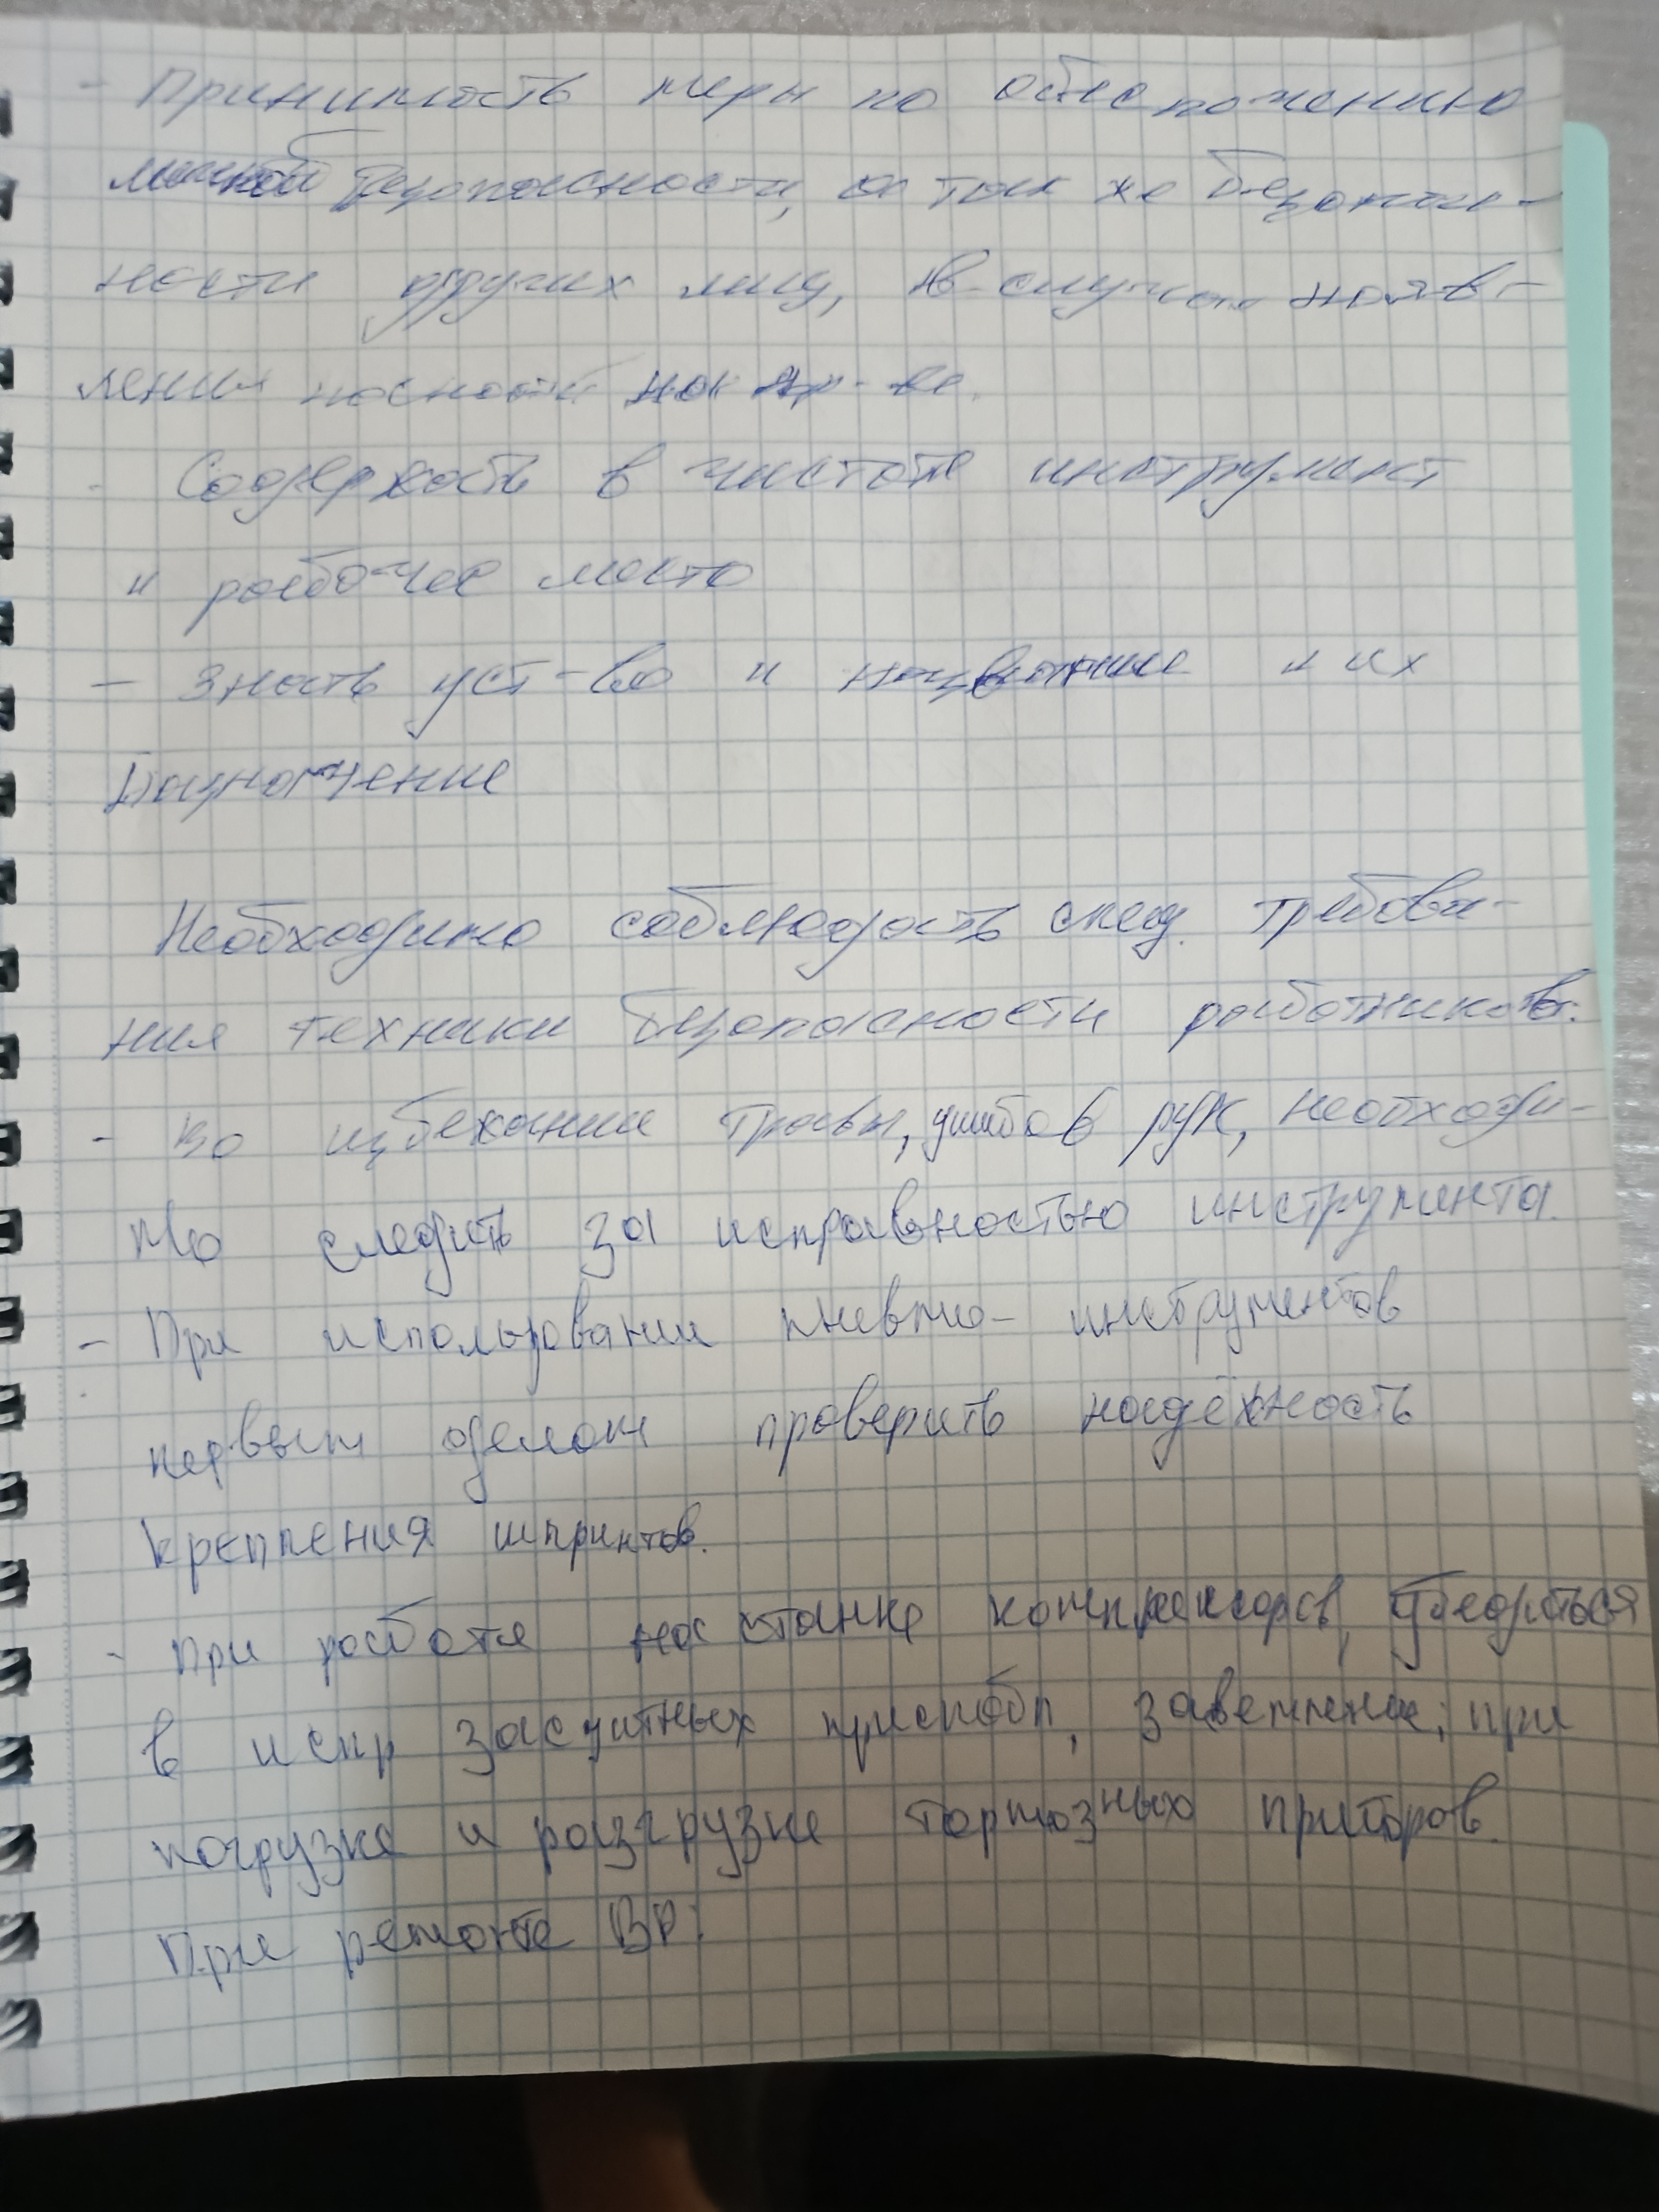 - Принимать меры по обеспочению
личной безопасности, а так же безопас-
ности других лиц, в случае появ-
ления на пр-ве.
- Содержать в чистоте инструмент
и рабочее место
- Знать уст-во и название и их
назначение
Необходимо соблюдать след. требова-
ния техники безопасности работников:
- Во избежании травм, ушибов рук, необходи-
мо следить за исправностью инструмента.
- При использовании пневмо- инструментов
первым делом проверить надёжность
крепления шпринтов.
- При работе на станке компрессоров, убедиться
в испр защитных приспобл, заземление; при
погрузке и разгрузке тормозных приборов.
При ремонте ВР: